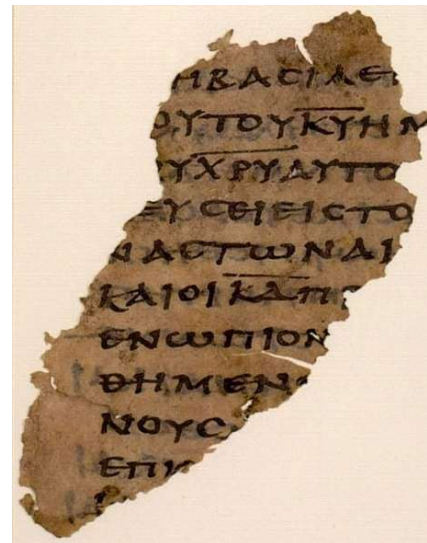 ΗΒΑCΙΛΕΙ
ΟΥΤΟΥΚΥΗΜ
ΥΧΡΥΑΥΤΟ
ΕΥCΕΙΕΙCΤΟ
ΝΑΕΤΩΝΑΙ
ΚΑΙΟΙΚΔΠΡ
ΕΝΩΠΙΟΝ
ΘΗΜΕΝ
ΝΟΥC
ΕΠΙ